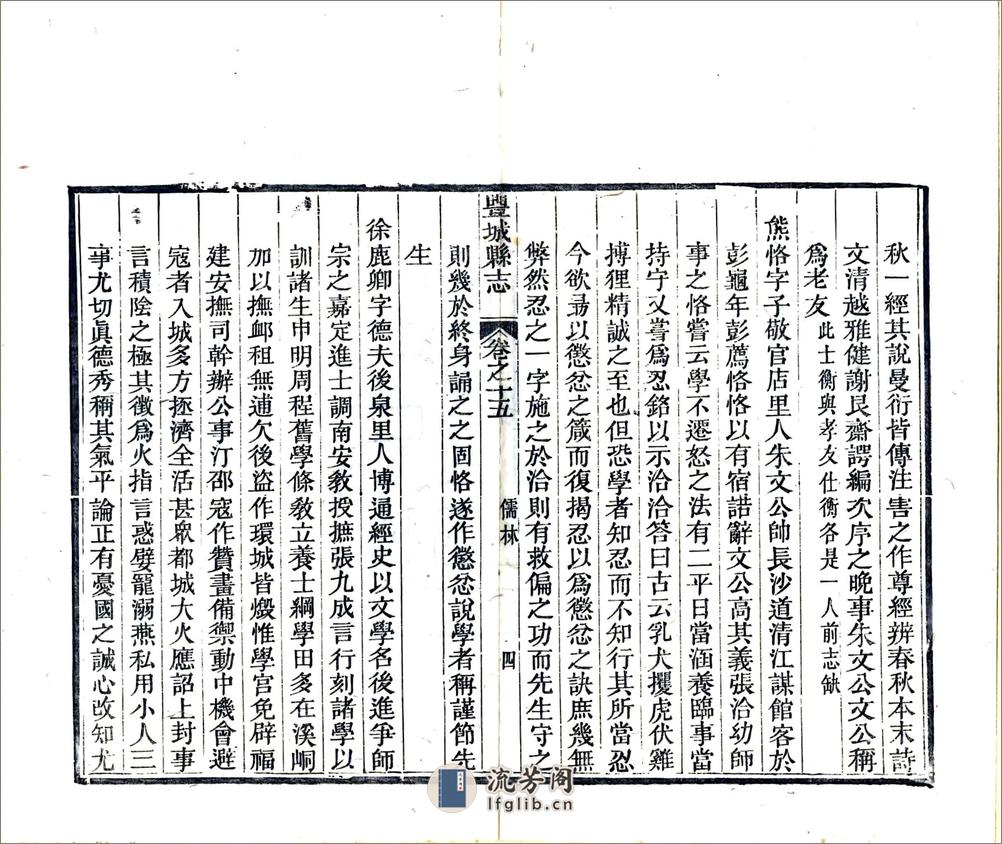 秋一經其說曼衍皆傳注害之作尊經辨春秋本末詩
文清越雅健謝艮齋諤編次序之晚事朱文公文公稱
爲老友此士衡與孝友仕衡各是一人前志缺
熊恪字子敬官店里人朱文公帥長沙道清江謀館客於
彭龜年彭薦恪恪以有宿諾辭文公高其義張洽幼師
事之恪嘗云學不遷怒之法有二平日當涵養臨事當
持守又嘗爲忍銘以示洽洽答曰古云乳犬攫虎伏雞
搏狸精誠之至也但恐學者知忍而不知行其所當忍
今欲易以懲忿之箴而復揭忍以爲懲忿之訣庶幾無
弊然忍之一字施之於洽則有救偏之功而先生守之
豐城縣志
卷之十五
儒林
四
則幾於終身誦之之固恪遂作懲忿說學者稱謹節先
生
徐鹿卿字德夫後泉里人博通經史以文學名後進爭師
宗之嘉定進士調南安敎授摭張九成言行刻諸學以
訓諸生申明周程舊學條敎立養士綱學田多在溪峒
加以撫卹租無逋欠後盜作環城皆燬惟學宮免辟福
建安撫司幹辦公事汀邵寇作贊畫備禦動中機會避
寇者入城多方拯濟全活甚眾都城大火應詔上封事
言積陰之極其徵爲火指言惑嬖寵溺燕私用小人三
事尤切眞德秀稱其氣平論正有憂國之誠心改知尤
流芳阁
lfglib.cn